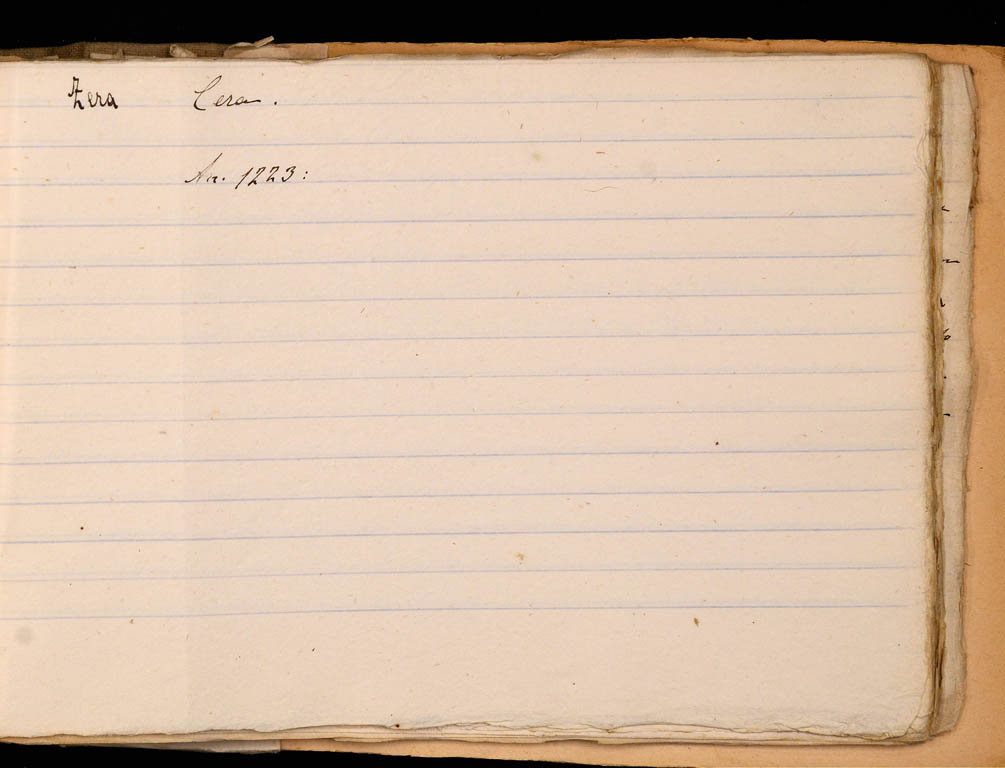 Zera Cera.
An. 1223: